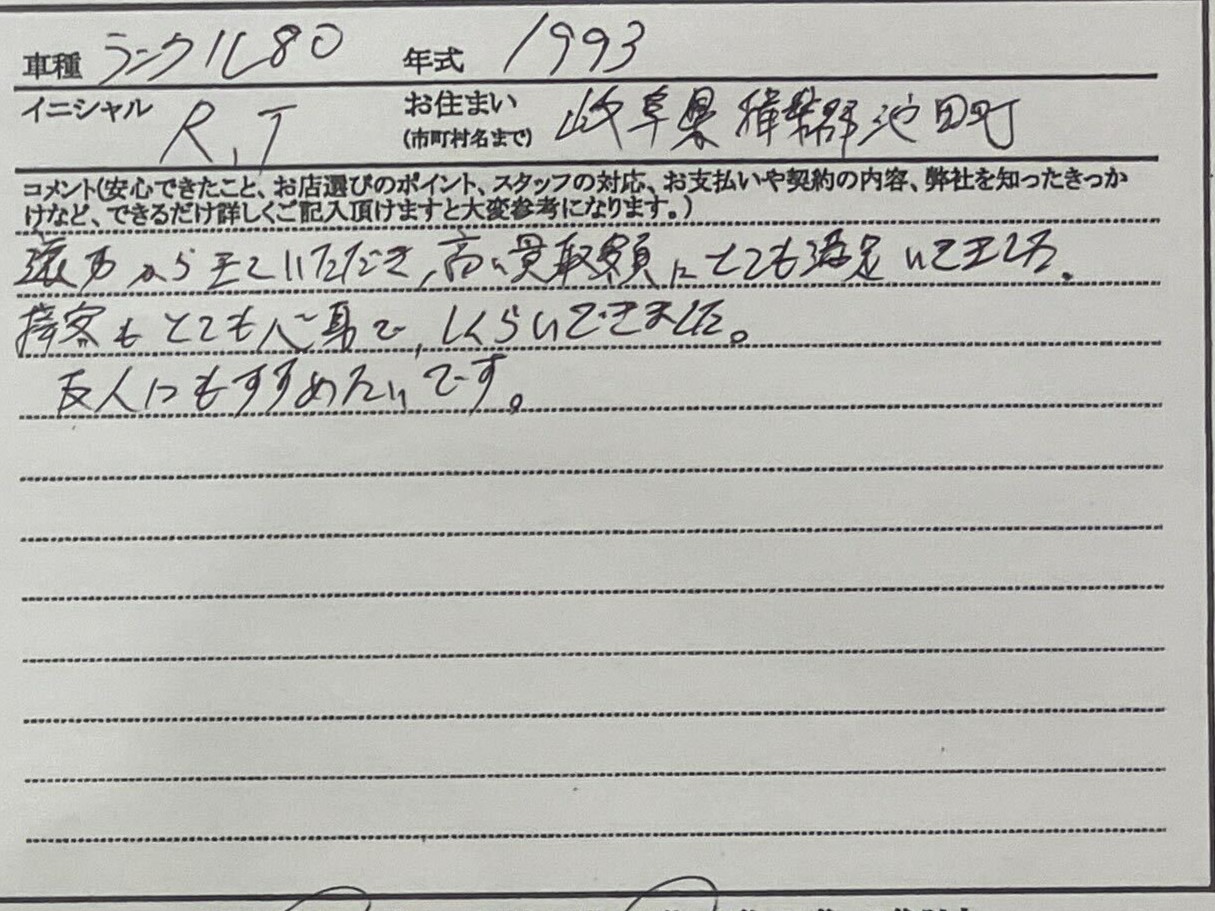 車種 ランクル80 年式 1993
イニシャル R.T お住まい(市町村名まで) 岐阜県揖斐郡池田町
コメント(安心できたこと、お店選びのポイント、スタッフの対応、お支払いや契約の内容、弊社を知ったきっか
けなど、できるだけ詳しくご記入頂けますと大変参考になります。)
遠方から来ていただき、高い買取額にとても満足いきました。
接客もとても で、しんらいできました。
友人にもすすめたいです。